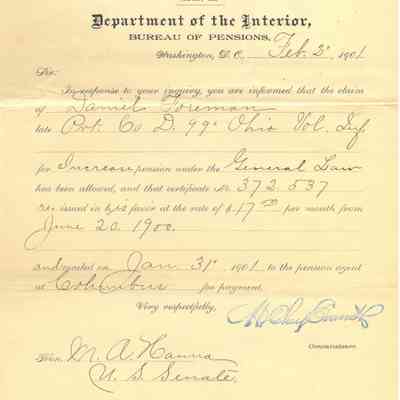 Department of the Interior,
BUREAU OF PENSIONS,
Washington, D. C., Feb. 2d 1901
Sir:
In response to your inquiry, you are informed that the claim
of Daniel Foreman
late Pvt. Co D. 99" Ohio Vol. Inf.
for Increase pension under the General Law
has been allowed, and that certificate No. 372.537
issued in his favor at the rate of $17 00 per month from
June 20. 1900.
and mailed on Jan 31" 1901 to the pension agent
at Columbus for payment.
Very respectfully,
Commissioner.
Hon. M. A. Hanna
U. S. Senate.